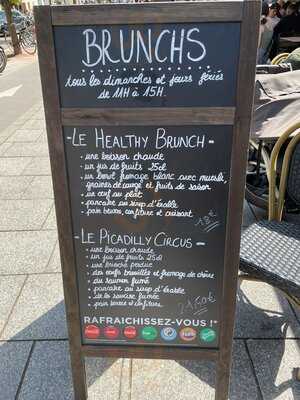 BRUNCHS
tous les dimanches et jours fériés
de 11H à 15H.
- LE HEALTHY BRUNCH -
• une boisson chaude
• un jus de fruits 25cl
• un bowl fromage blanc avec muesli,
graines de courge et fruits de saison
• un œuf au plat
• pancake au sirop d'érable
• pain beurre, confiture et croissant
18€
- LE PICADILLY CIRCUS -
• une boisson chaude
• un jus de fruits 25cl
• une brioche perdue
• des œufs brouillés et fromage de chèvre
• du saumon fumé
• pancake au sirop d'érable
• de la saucisse fumée
• pain beurre et confiture
21,50€
RAFRAICHISSEZ-VOUS !